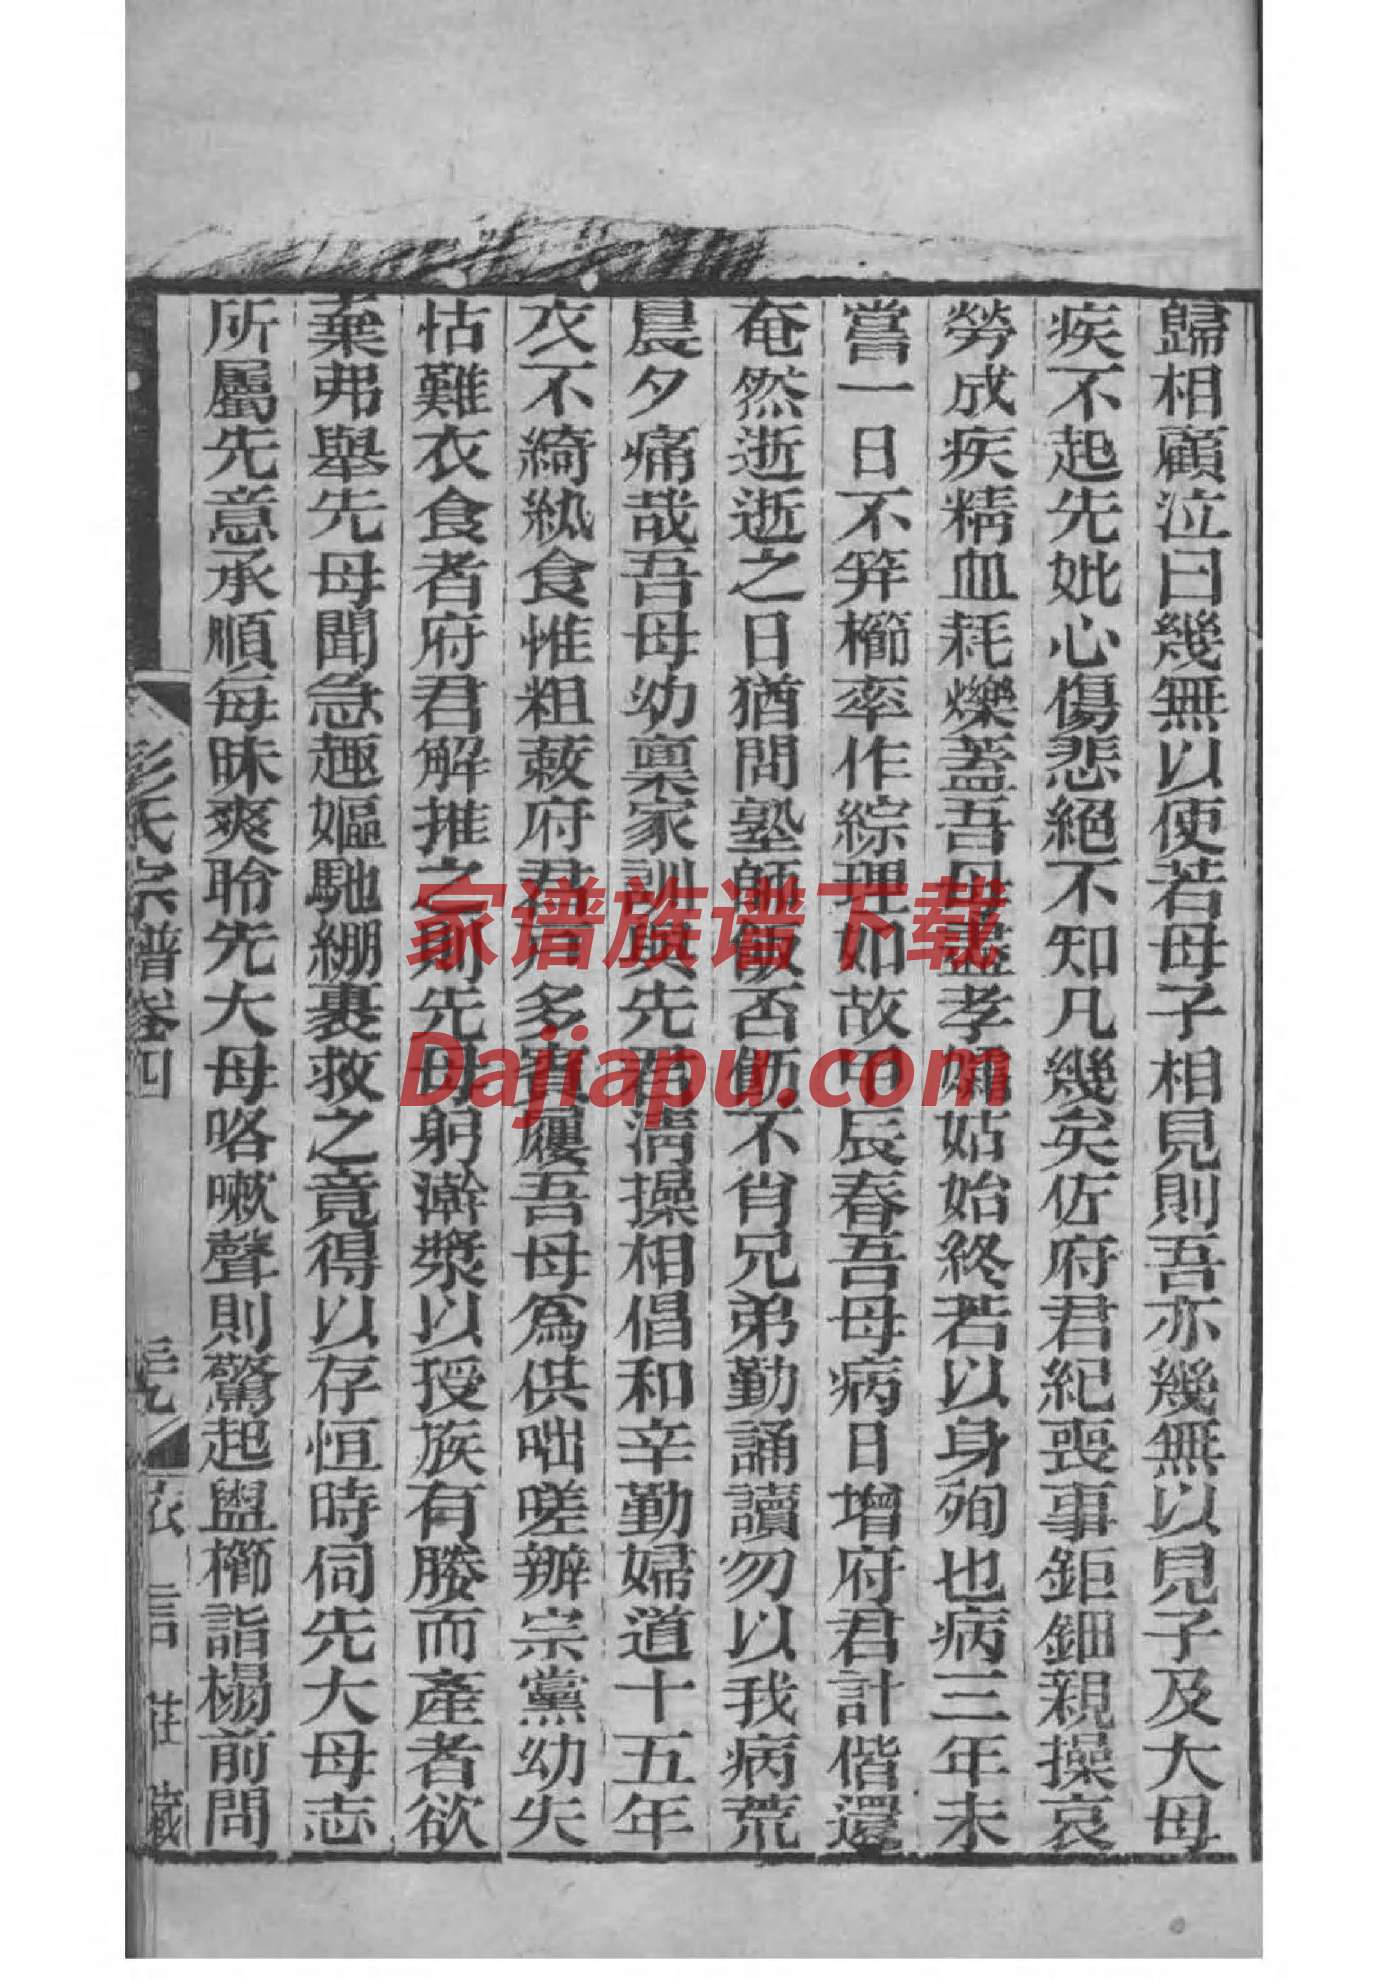 歸相顧泣曰幾無以使若母子相見則吾亦幾無以見子及大母
疾不起先妣心傷悲絕不知凡幾矣佐府君紀喪事鉅細親操哀
勞成疾精血耗爍蓋吾母盡孝孀姑始終若以身殉也病三年未
嘗一日不笄櫛率作綜理如故甲辰春吾母病日增府君計偕還
奄然逝逝之日猶問塾師飯否勖不肖兄弟勤誦讀勿以我病荒
晨夕痛哉吾母幼稟家訓與先君清操相倡和辛勤婦道十五年
衣不綺紈食惟粗蔌府君好多賓履吾母為供咄嗟辦宗黨幼失
怙難衣食者府君解推之則先母躬澣漿以授族有媵而產者欲
棄弗舉先母聞急趣嫗馳綳裹救之竟得以存恒時伺先大母志
所屬先意承順每昧爽聆先大母咯嗽聲則驚起盥櫛詣榻前問
彭氏宗譜卷四
家谱族谱下载
Dajiapu.com